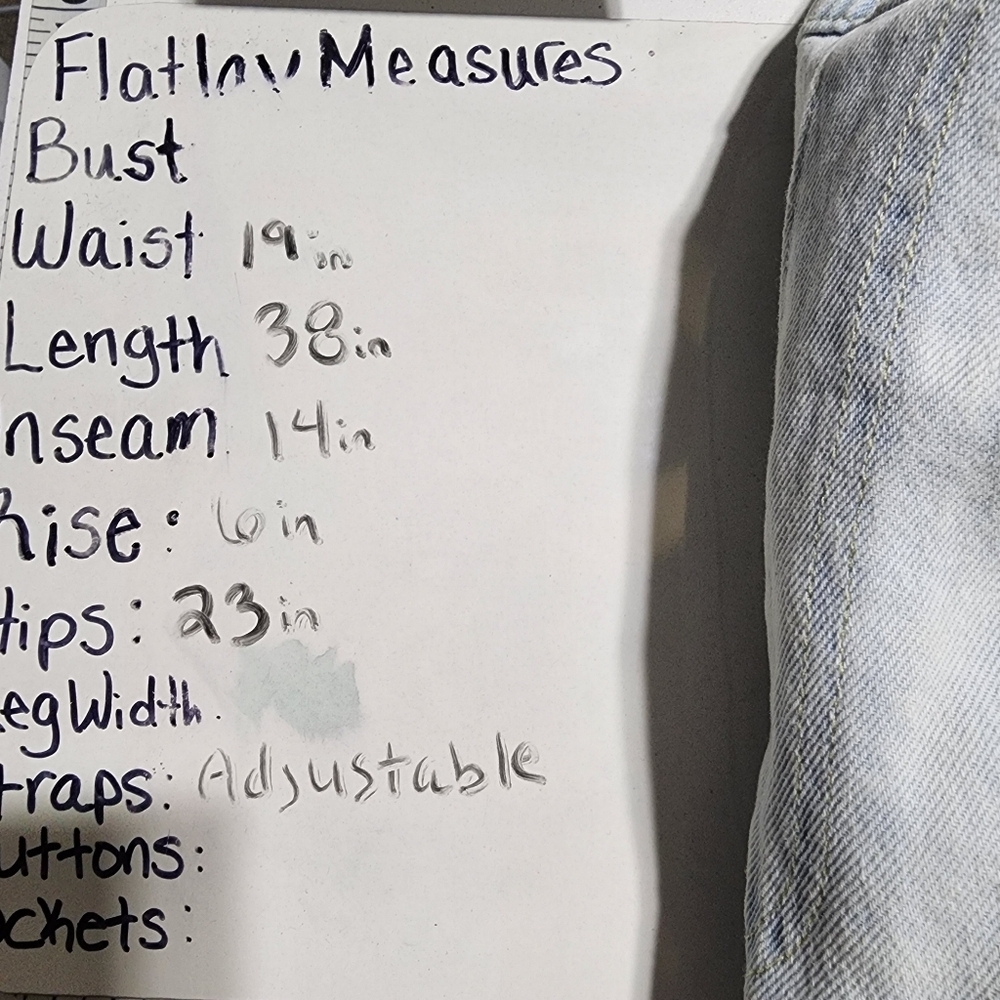 Flatlay Measures
Bust
Waist 19in
Length 38in
nseam 14in
Rise: 6in
Hips: 23in
egWidth
traps: Adjustable
uttons:
ockets: